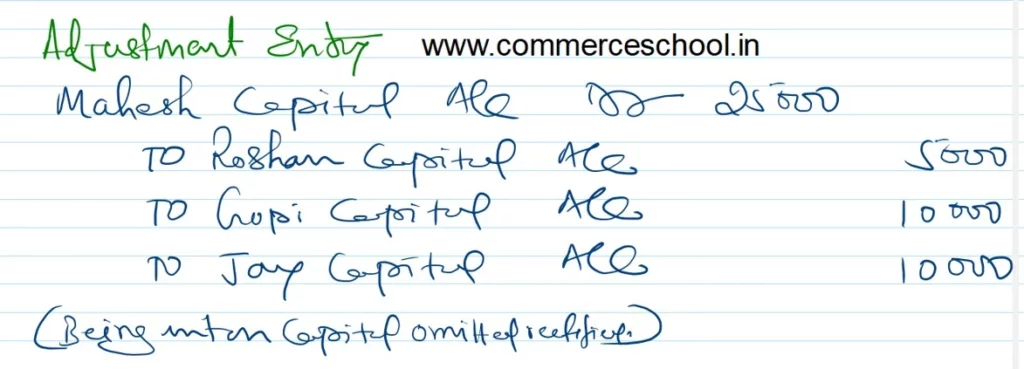 Adjustment Entry www.commerceschool.in
Mahesh Capital A/c Dr 25000
TO Roshan Capital A/c 5000
TO Gopi Capital A/c 10000
TO Jay Capital A/c 10000
(Being int on Capital omitted rectified.)